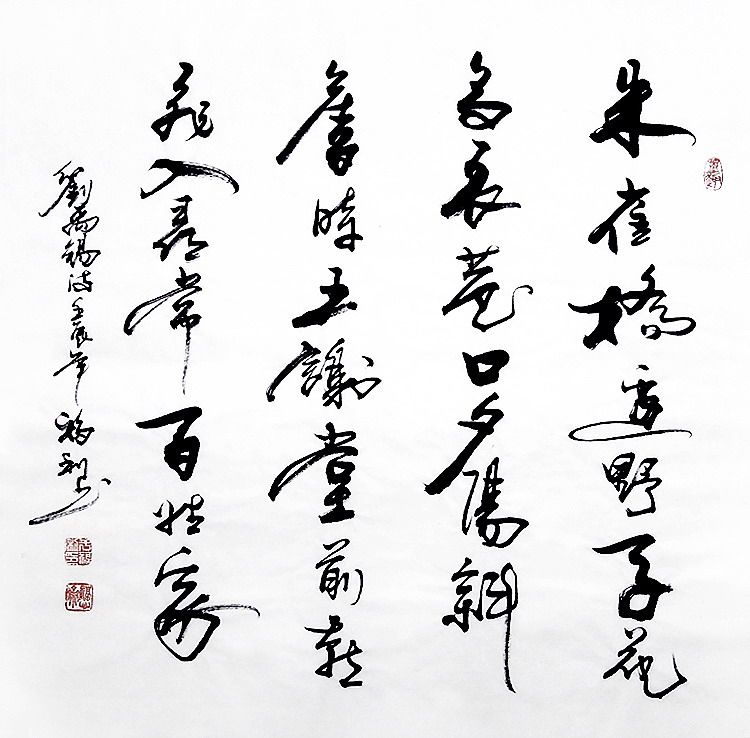 朱雀橋邊野草花
烏衣巷口夕陽斜
舊時王謝堂前燕
飛入尋常百姓家
劉禹錫詩壬辰年福利书